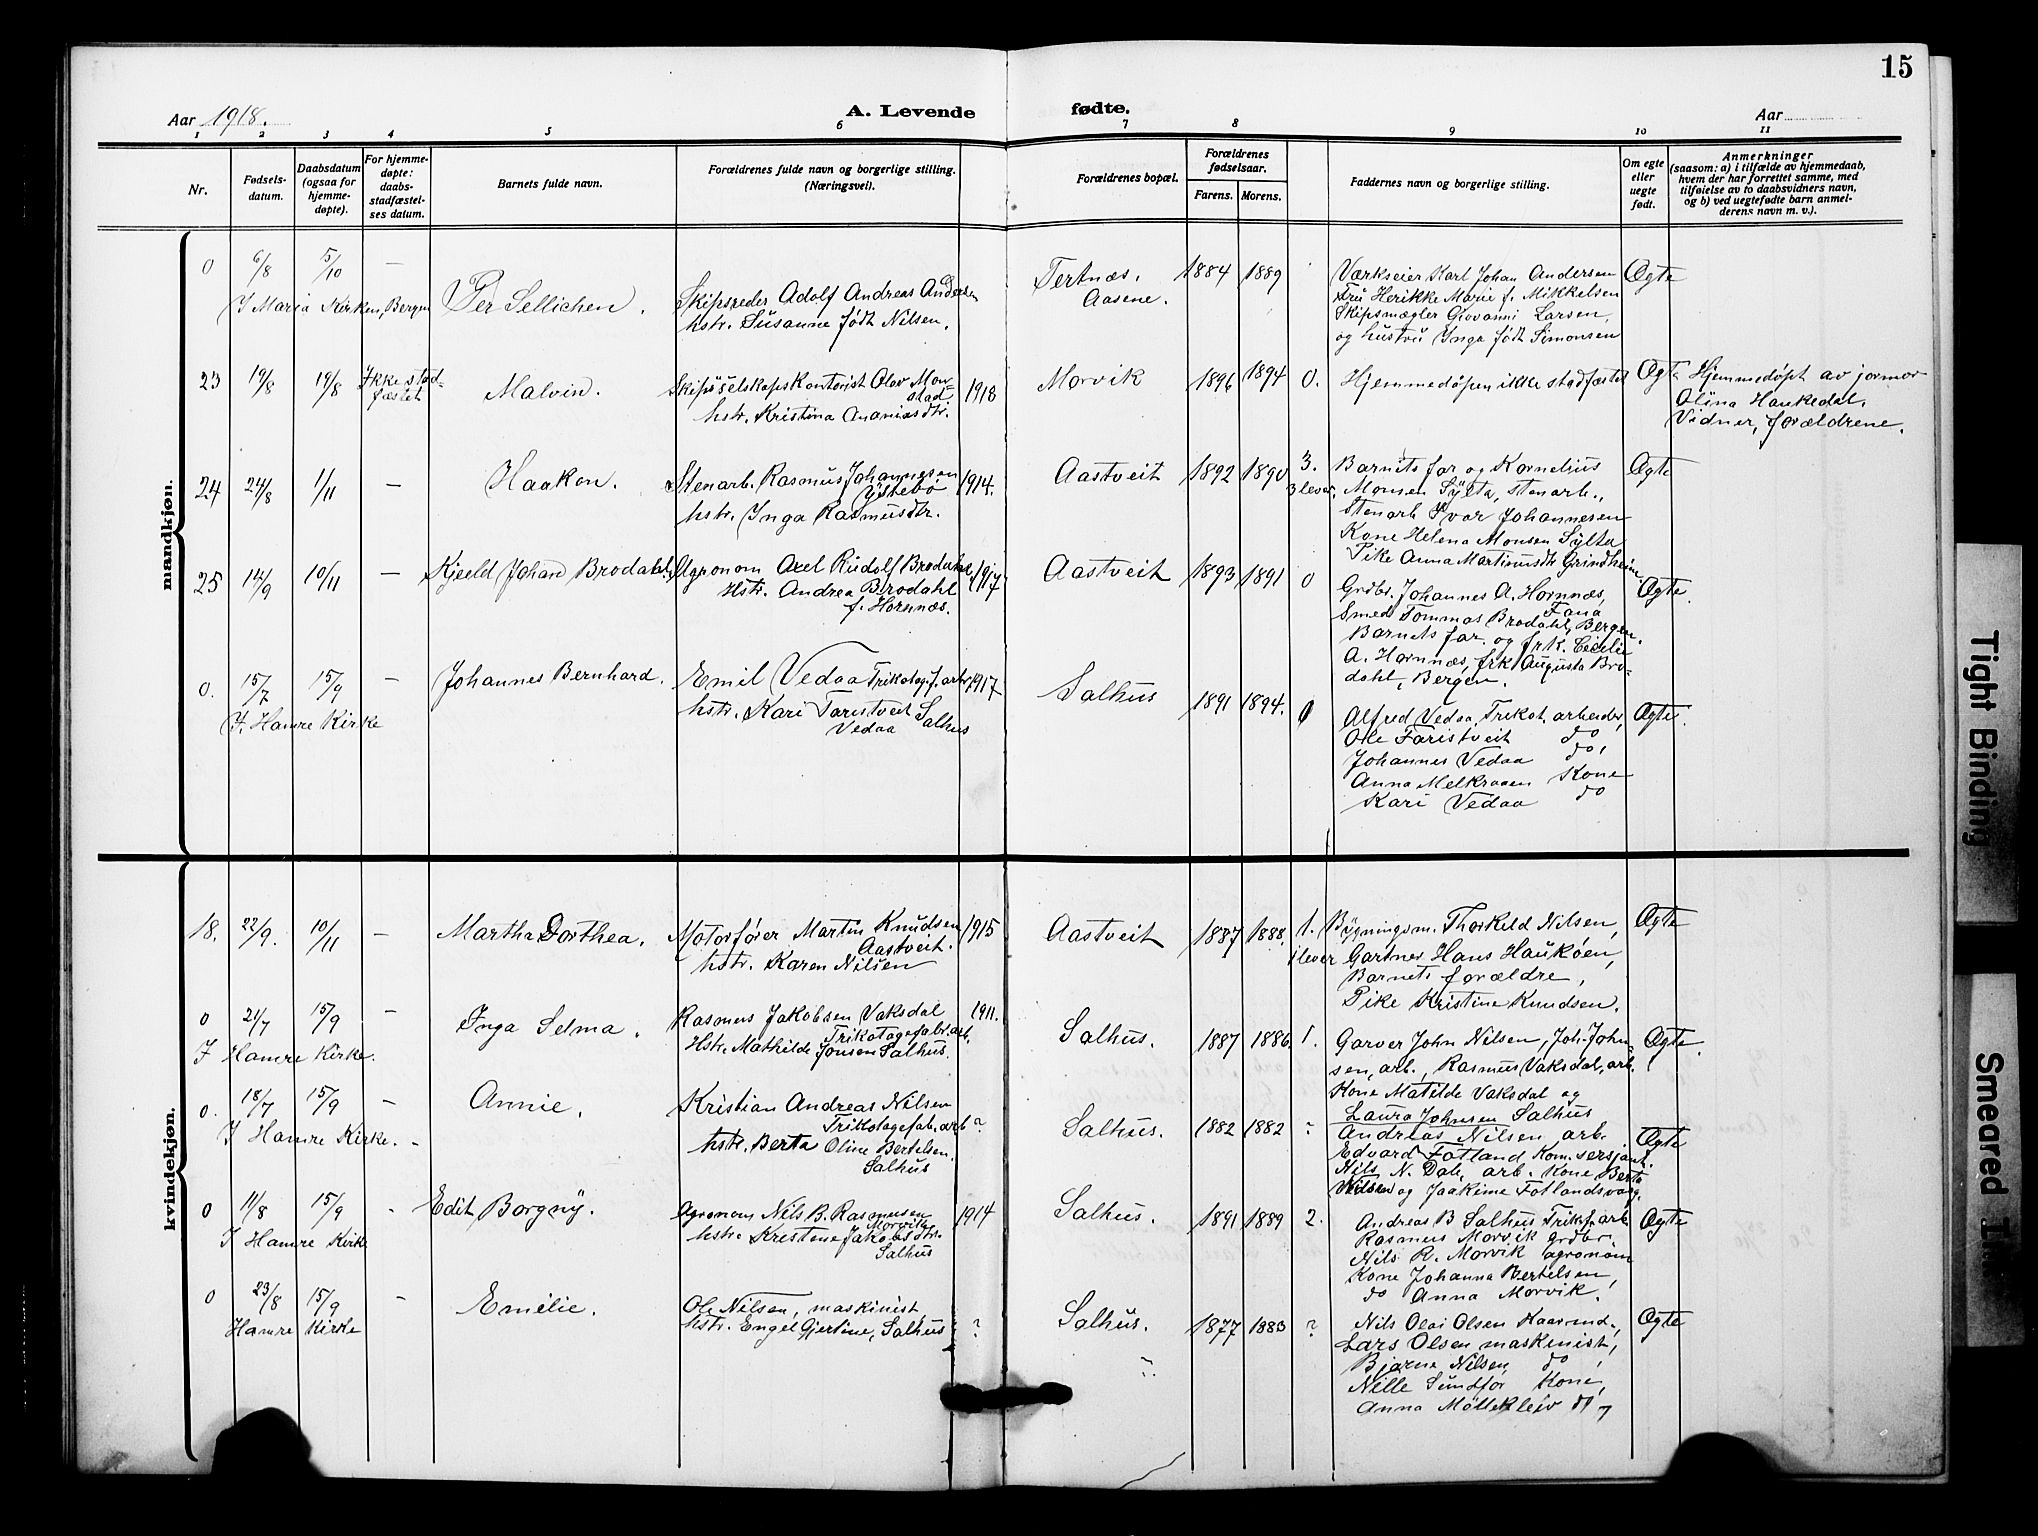 15
Aar 1918.
A. Levende fødte.
Aar
1 2 3 4 5 6 7 8 9 10 11
Nr.
Fødsels-
datum.
Daabsdatum
(ogsaa for
hjemme-
døpte).
For hjemme-
døpte:
daabs-
stadfæstel-
ses datum.
Barnets fulde navn.
Forældrenes fulde navn og borgerlige stilling.
(Næringsvei).
Forældrenes bopæl.
Forældrenes
fødselsaar.
Farens. Morens.
Faddernes navn og borgerlige stilling.
Om egte
eller
uegte
født.
Anmerkninger
(saasom: a) i tilfælde av hjemmedaab,
hvem der har forrettet samme, med
tilføielse av to daabsvidners navn,
og b) ved uegtefødte barn anmel-
derens navn m. v.).
mandkjøn.
0 6/8 5/10 —
I Maria Kirken, Bergen
Per Sellichen.
Skipsreder Adolf Andreas Andersen
hstr. Susanne født Nilsen.
Tertnæs.
Aasene.
1884 1889
Værkseier Karl Johan Andersen
Fru Herikke Marie f. Mikkelsen
Skipsmægler Giovanni Larsen,
og hustru Inga født Simonsen
Ægte
23 19/8 19/8 Ikke stad-
fæstet
Malvin.
Skipsselskaps Kontorist Olav Mon-
stad
hstr. Kristina Ananiasdtr.
1918
Morvik 1896 1894 0.
Hjemmedøpen ikke stadfæstet
Ægte
Hjemmedøpt av jormor
Olina Haukedal.
Vidner, forældrene.
24 24/8 1/11 —
Haakon.
Stenarb. Rasmus Johannesen
Ystebø
hstr. Inga Rasmusdtr.
1914.
Aastveit 1892 1890 3.
3 lever.
Barnets far og Kornelius
Monsen Sylta, stenarb.,
Stenarb Ivar Johannesen
Kone Helena Monsen Sylta
Pike Anna Martinusdtr Grindheim
Ægte
25 14/9 10/11 —
Kjeeld Johan Brodahl.
Agronom Axel Rudolf Brodahl
Hstr. Andrea Brodahl
f. Hornnæs.
1917
Aastveit 1893 1891 0
Grdbr. Johannes A. Hornnæs,
Fana
Smed Tommas Brodahl, Bergen.
Barnets far og frk. Cecilie
A. Hornnæs, frk Augusta Bro-
dahl, Bergen.
Ægte.
0. 15/7 15/9 —
I. Hamre Kirke
Johannes Bernhard.
Emil Vedaa Trikotag.f. arb
hstr. Kari Taristveit Salhus
Vedaa
1917
Salhus 1891 1894. 0
Alfred Vedaa, Trikot. arbeider
Ole Faristveit do
Johannes Vedaa do,
Anna Melkraaen Kone
Kari Vedaa do
Ægte.
kvindekjøn.
18. 22/9. 10/11 —
Martha Dorthea.
Motorfører Martin Knudsen
Aastveit.
hstr. Karen Nilsen
1915
Aastveit 1887 1888. 1.
1 lever
Bygningsm. Thorkeld Nilsen,
Gartner Hans Haukøen,
Barnets forældre,
Pike Kristine Knudsen.
Ægte
0 21/7 15/9 —
I Hamre Kirke.
Inga Selma.
Rasmus Jakobsen Vaksdal
Trikotagefabr. arb.
Hstr. Mathilde Jonsen Salhus.
1911.
Salhus. 1887 1886. 1.
Garver John Nilsen, Joh. John-
sen, arb., Rasmus Vaksdal, arb.
Kone Matilde Vaksdal og
Laura Johnsen Salhus
Ægte.
0. 18/7 15/9 —
I Hamre Kirke. -
Annie.
Kristian Andreas Nilsen
Trikotagefab. arb
hstr. Berta Oline Bertelsen.
Salhus
?
Salhus. 1882 1882 ?
Andreas Nilsen arb.
Edvard Fotland Kom. sersjant.
Nils N. Dale, arb. Kone Berta
Nilsen og Jaakime Fotlandsvaag.
Ægte
0 11/8 15/9 -
I Hamre Kirke
Edit Borgny.
Agronom Nils B. Rasmusen
Morvik
hstr. Kristene Jakobsdtr.
Salhus
1914
Salhus. 1891 1889 2.
Andreas B Salhus Trikf. arb
Rasmus Morvik grdbr.
Nils R. Morvik agronom
Kone Johanna Bertelsen,
do Anna Morvik.
Ægte
0 23/8 15/9 —
Hamre Kirke
Emelie.
Ole Nilsen, maskinist
hstr. Engel Gjertine, Salhus
?
Salhus. 1877 1883 ?
Nils Olai Olsen
Lars Olsen maskinist,
Bjarne Nilsen do,
Nille Sundfør Kone,
Anna Møllekleiv do
Ægte
Tight Binding
Smeared